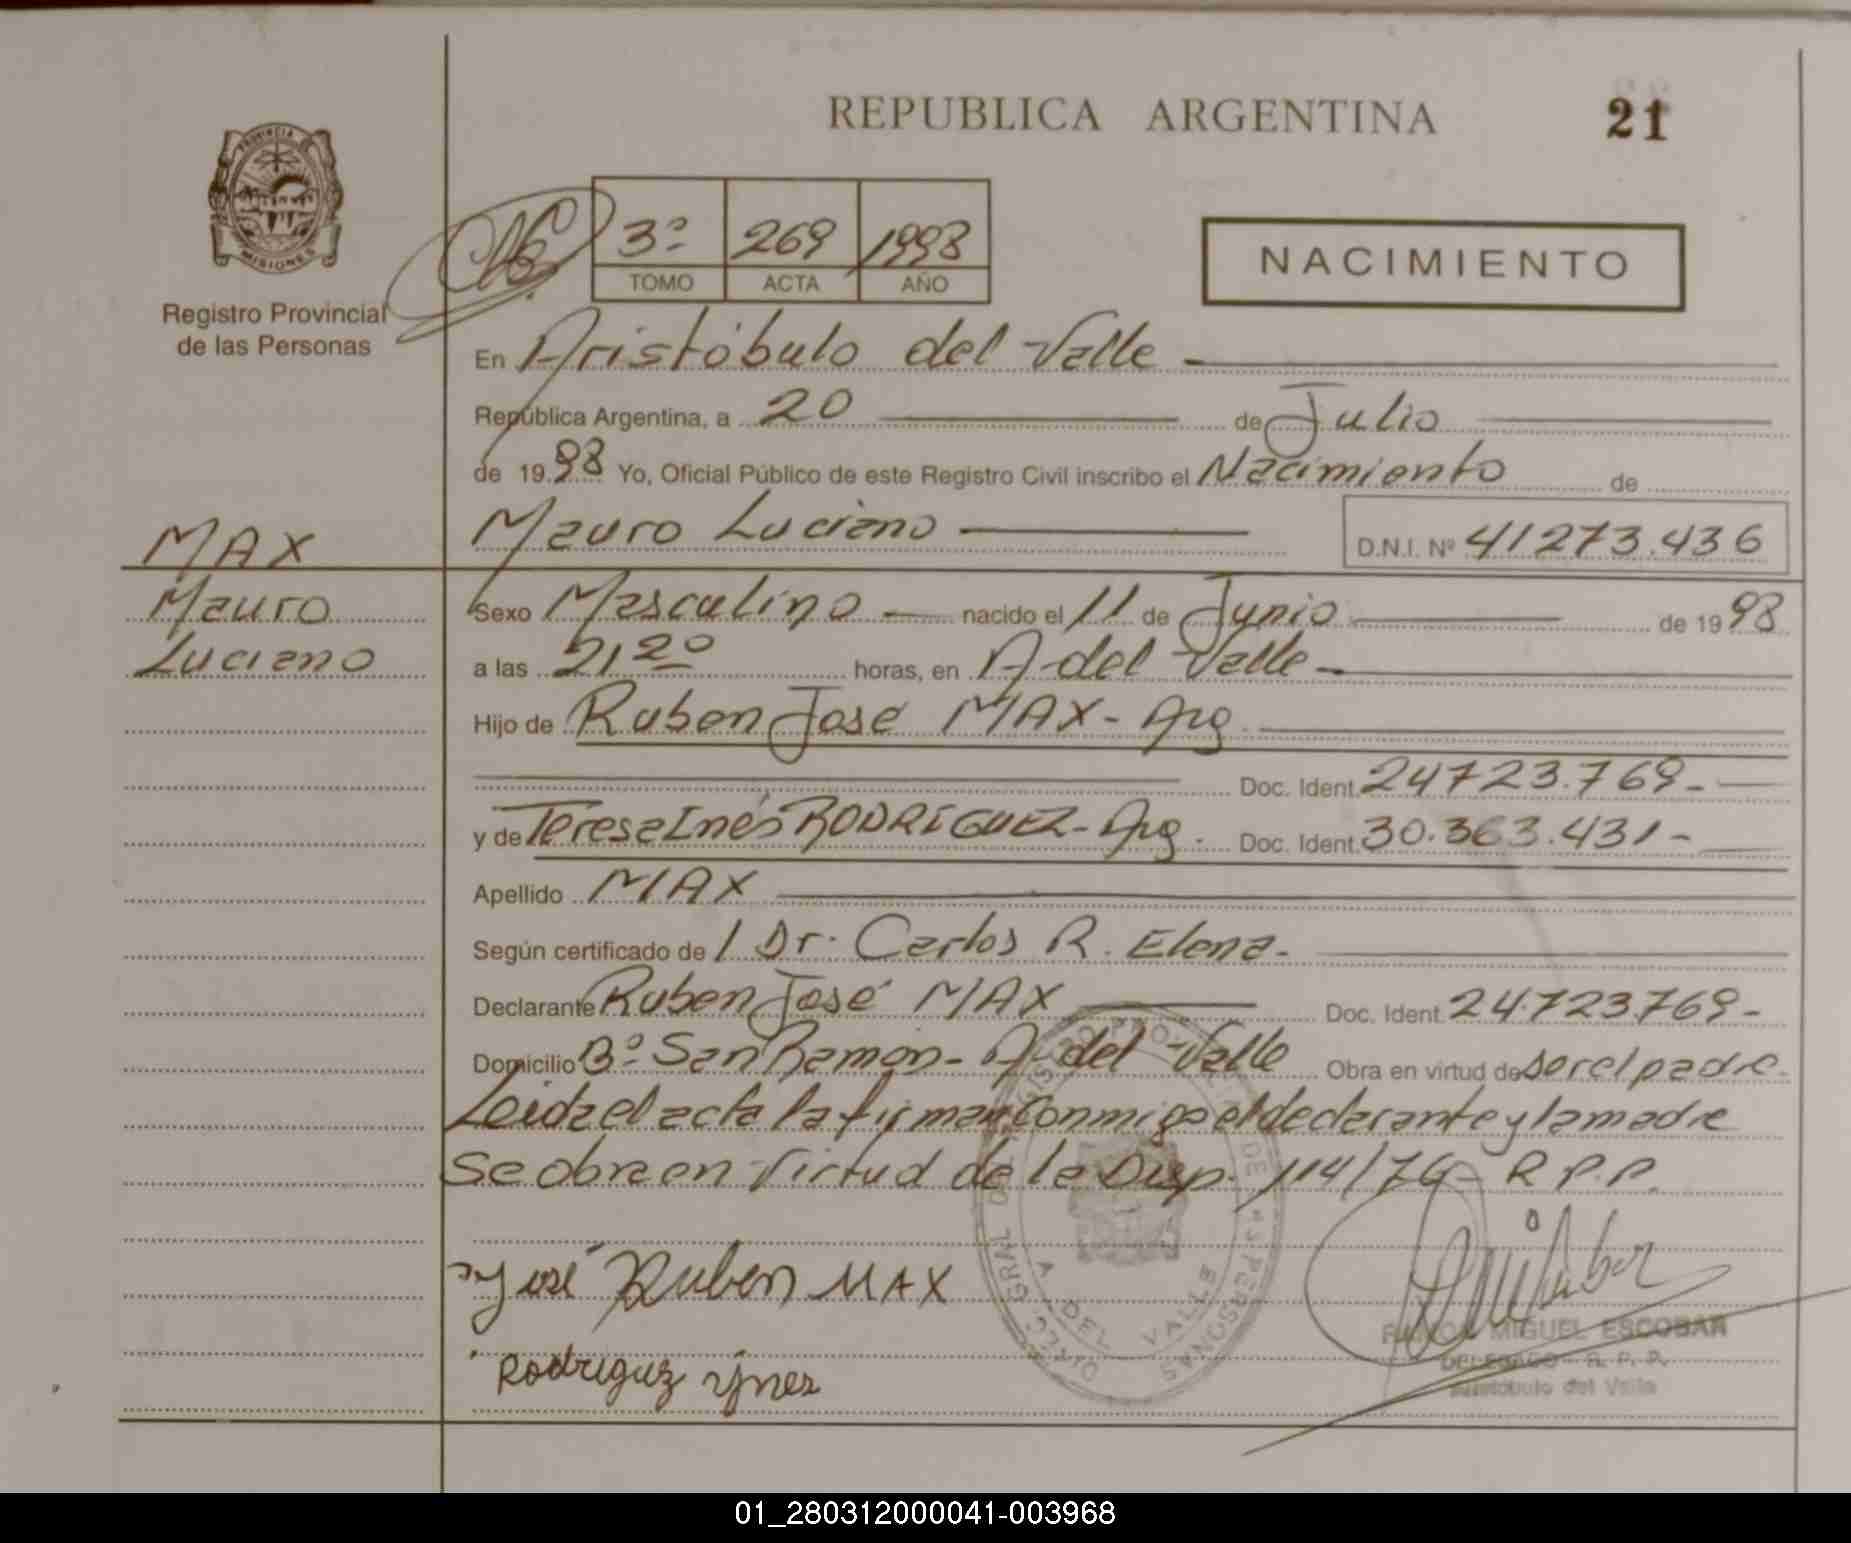 REPUBLICA ARGENTINA
21
PROVINCIA DE
MISIONES
Registro Provincial
de las Personas
3º 269 1998
TOMO ACTA AÑO
NACIMIENTO
En Aristóbulo del Valle
República Argentina, a 20 de Julio
de 1998 Yo, Oficial Público de este Registro Civil inscribo el Nacimiento de
Mauro Luciano D.N.I. Nº 41273.436
MAX
Mauro
Luciano
Sexo Masculino nacido el 11 de Junio de 1998
a las 21 20 horas, en A. del Valle
Hijo de Ruben José MAX - Arg.
Doc. Ident. 24723.769-
y de Teresa Inés RODRIGUEZ - Arg. Doc. Ident. 30.363.431-
Apellido MAX
Según certificado de / Dr. Carlos R. Elena-
Declarante Ruben José MAX Doc. Ident. 24.723.769-
Domicilio Bº San Ramon - A. del Valle Obra en virtud de ser el padre
Leida el acta la firman conmigo el declarante y la madre
Se obra en Virtud de la Disp. 114/76 - R.P.P.
José Ruben MAX
Rodriguz ynez
A. DEL VALLE
RAMON MIGUEL ESCOBAR
DELEGADO - R. P. P.
Aristóbulo del Valle
01_280312000041-003968